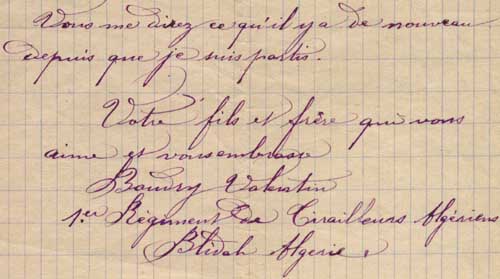 Vous me direz ce qu'il y a de nouveau
depuis que je suis partis.
Votre fils et frère qui vous
aime et vous embrasse
Baudry Valentin
1er Régiment de Tirailleurs Algériens
Blidah Algerie,